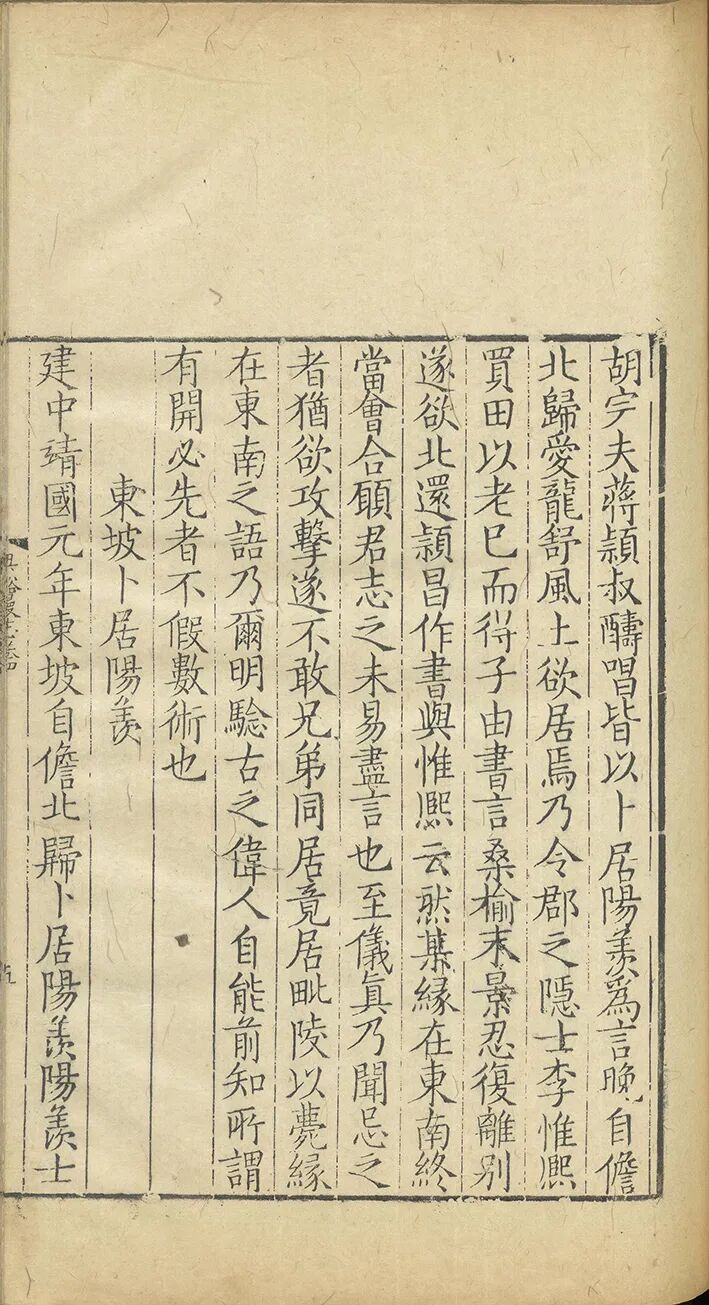 胡宁夫蔣穎叔醻唱皆以卜居陽羨爲言晚自儋
北歸愛龍舒風土欲居焉乃令郡之隱士李惟熙
買田以老巳而得子由書言桑榆末景忍復離别
遂欲北還頴昌作書與惟熙云然某縁在東南終
當會合願君志之未易盡言也至儀眞乃聞忌之
者猶欲攻擊遂不敢兄弟同居竟居毗陵以薨縁
在東南之語乃爾明驗古之偉人自能前知所謂
有開必先者不假數術也
東坡卜居陽羨
建中靖國元年東坡自儋北歸卜居陽羨陽羨士